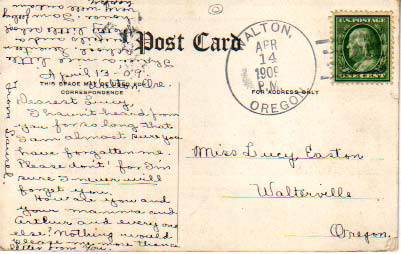 Post Card
THIS PLACE MAY BE USED FOR
CORRESPONDENCE
FOR ADDRESS ONLY
WALTON,
APR
14
1909
P.M.
OREGON
U.S. POSTAGE
ONE CENT
April 13 - 09.
Dearest Lucy:
I haven't heard from
you for so long that
I am almost sure you
have forgotten me.
Please don't! for I'm
sure I never will
forget you.
How are you and
your mamma and
Arthur and everyone
else? Nothing would
please me more than a
letter from you.
From Laurel.
Miss Lucy Easton
Walterville
Oregon.